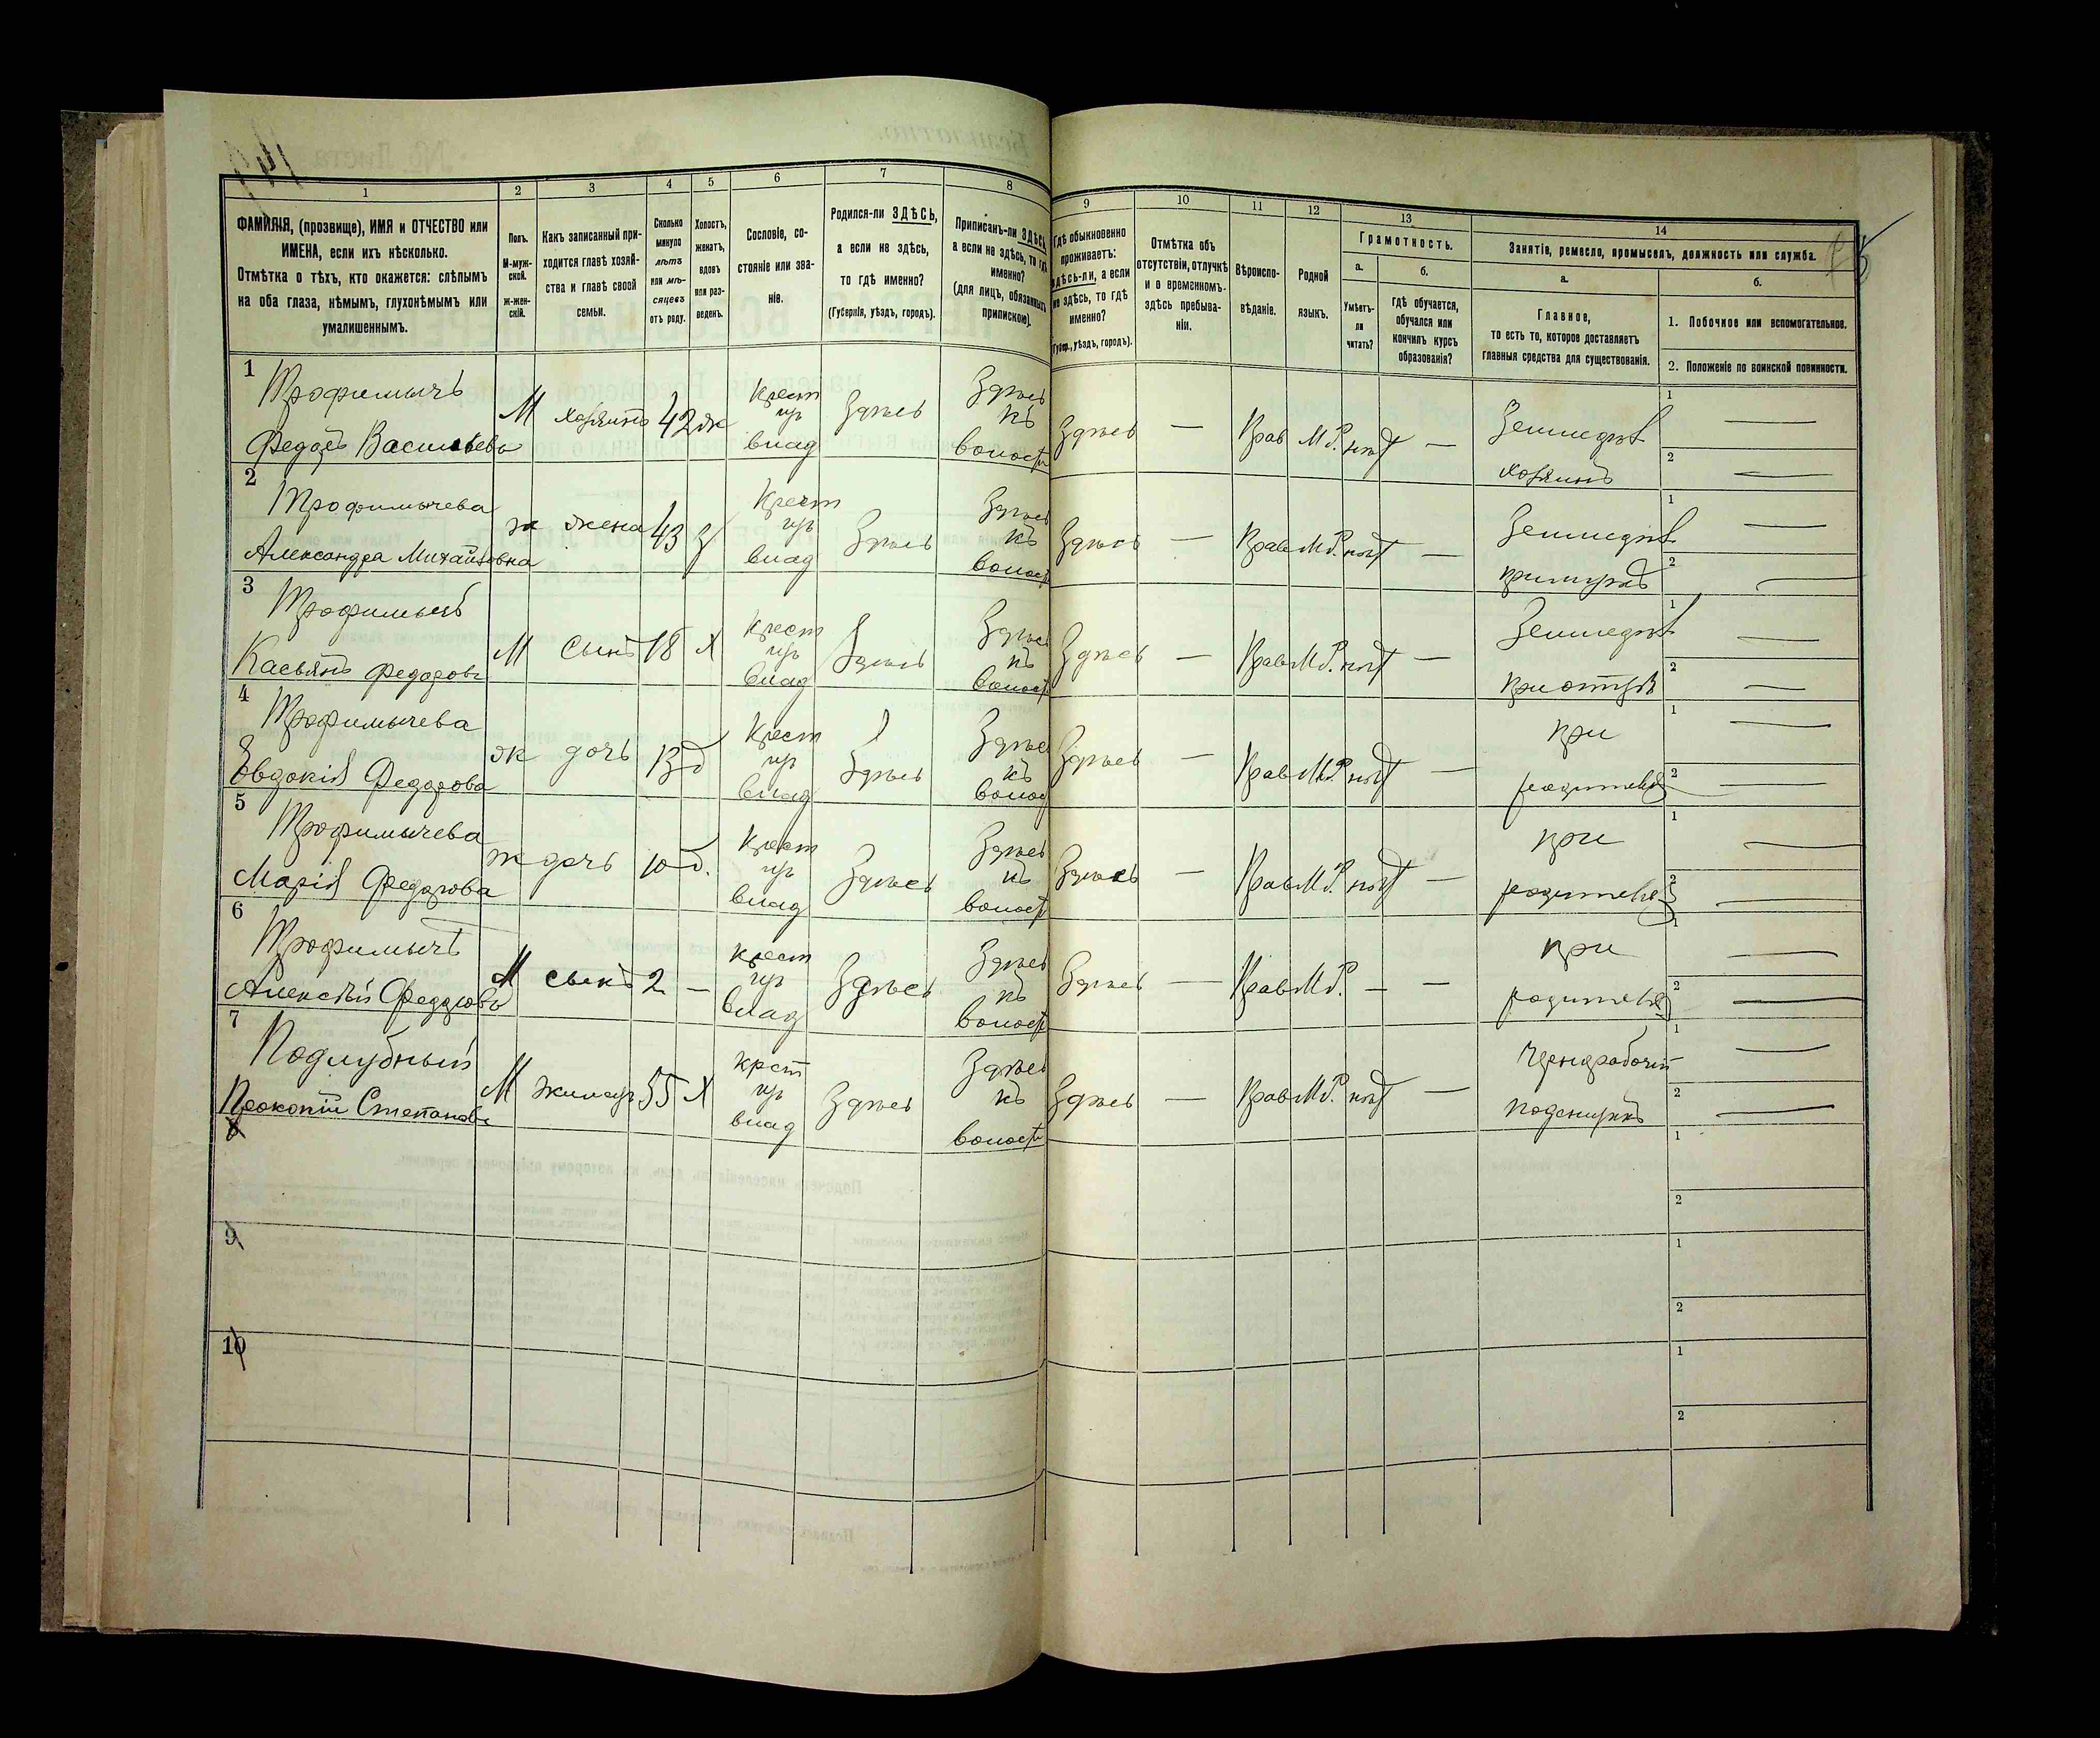 149
1
2
3
4
5
6
7
8
ФАМИЛІЯ, (прозвище), ИМЯ и ОТЧЕСТВО или
ИМЕНА, если ихъ нѣсколько.
Отмѣтка о тѣхъ, кто окажется: слѣпымъ
на оба глаза, нѣмымъ, глухонѣмымъ или
умалишеннымъ.
Полъ.
М-муж-
ской.
ж-жен-
скій.
Какъ записанный при-
ходится главѣ хозяй-
ства и главѣ своей
семьи.
Сколько
минуло
лѣтъ
или мѣ-
сяцевъ
отъ роду.
Холостъ,
женатъ,
вдовъ
или раз-
веденъ.
Сословіе, со-
стояніе или зва-
ніе.
Родился-ли ЗДѢСЬ,
а если не здѣсь,
то гдѣ именно?
(Губернія, уѣздъ, городъ).
Приписанъ-ли ЗДѢСЬ,
а если не здѣсь, то гдѣ
именно?
(для лицъ, обязанныхъ
припискою).
9
10
11
12
13
14
Гдѣ обыкновенно
проживаетъ:
здѣсь-ли, а если
не здѣсь, то гдѣ
именно?
(Губер., уѣздъ, городъ).
Отмѣтка объ
отсутствіи, отлучкѣ
и о временномъ
здѣсь пребыва-
ніи.
Вѣроиспо-
вѣданіе.
Родной
языкъ.
Грамотность.
а.
Умѣетъ-
ли
читать?
б.
гдѣ обучается,
обучался или
кончилъ курсъ
образованія?
Занятіе, ремесло, промыселъ, должность или служба.
а.
Главное,
то есть то, которое доставляетъ
главныя средства для существованія.
б.
1. Побочное или вспомогательное.
2. Положеніе по воинской повинности.
1
Трофимычъ
Федоръ Васильевъ
М
хозяинъ
42
ж
Крест
изъ
влад
Здѣсь
Здѣсь
къ
волости
Здѣсь
—
Прав
М Р.
нѣт
—
Земледѣл
хозяинъ
1
—
2
—
2
Трофимычева
Александра Михайловна
ж
жена
43
З
Крест
изъ
влад
Здѣсь
Здѣсь
къ
волост
Здѣсь
—
Прав
М Р.
нѣт
—
Земледѣл
при мужѣ
1
—
2
—
3
Трофимычъ
Касьянъ Федоровъ
М
Сынъ
18
Х
Крест
изъ
влад
Здѣсь
Здѣсь
къ
волост
Здѣсь
—
Прав
М Р.
нѣт
—
Земледѣл
при отцѣ
1
—
2
—
4
Трофимычева
Евдокія Федорова
ж
дочь
13
д
Крест
изъ
влад
Здѣсь
Здѣсь
къ
волос
Здѣсь
—
Прав
М Р.
нѣт
—
при
родителях
1
—
2
—
5
Трофимычева
Марія Федорова
ж
дочь
10
д.
Крест
изъ
влад
Здѣсь
Здѣсь
къ
волост
Здѣсь
—
Прав
М Р.
нѣт
—
при
родителях
1
—
2
—
6
Трофимычъ
Алексѣй Федоровъ
М
сынъ
2
—
Крест
изъ
влад
Здѣсь
Здѣсь
къ
волост
Здѣсь
—
Прав
М Р.
—
—
при
родителях
1
—
2
—
7
Подлубный
Прокопій Степановъ
М
жилец
55
Х
крст
изъ
влад
Здѣсь
Здѣсь
къ
волост
Здѣсь
—
Прав
М Р.
нѣт
—
Чернорабочій
поденщикъ
1
—
2
—
8
1
2
9
1
2
10
1
2